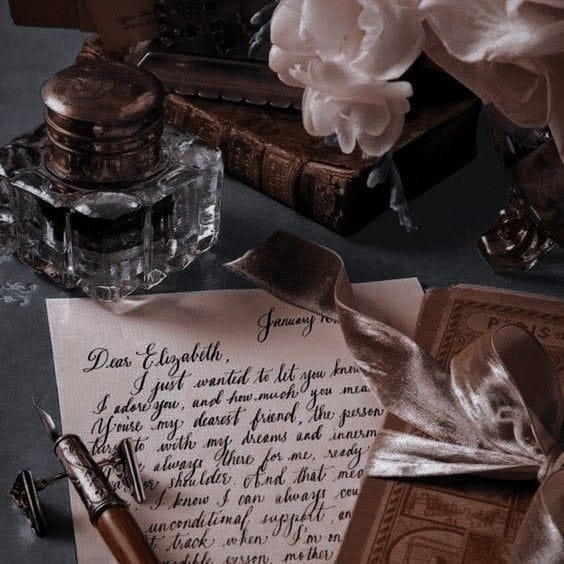 January
Dear Elizabeth,
I just wanted to let you know
I adore you, and how much you mea
You're my dearest friend, the person
to with my dreams and innerm
always there for me, ready
or shoulder. And that mea
I know I can always cou
unconditional support, an
t track when I'm on
edible person, mother
PARIS